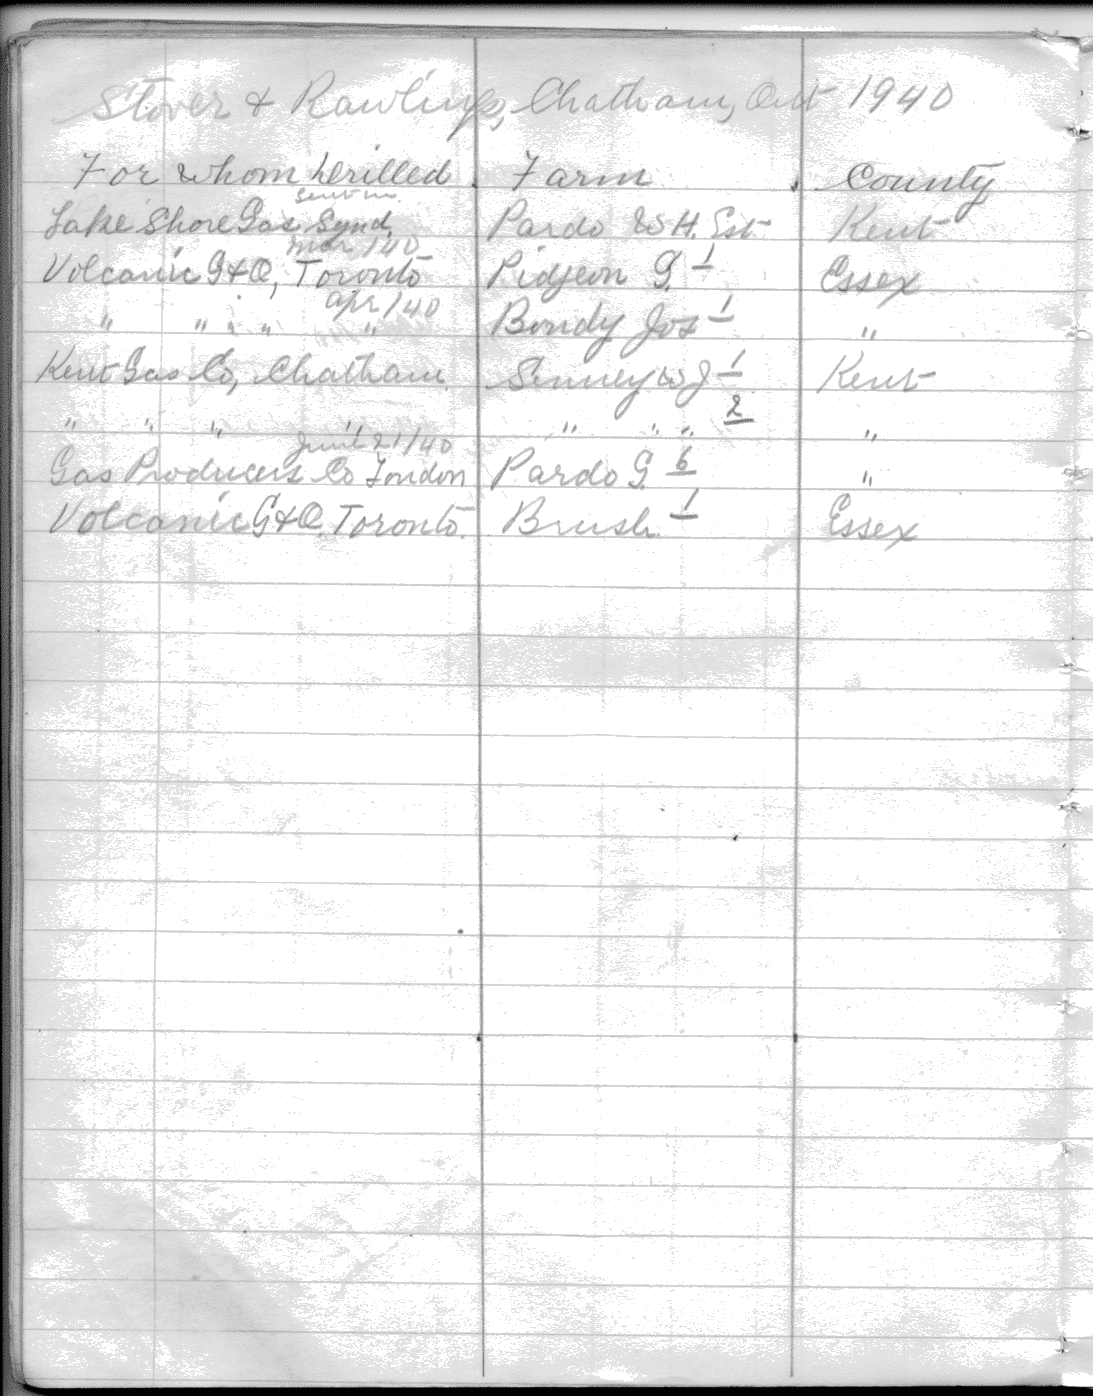 Stover & Rawlings, Chatham, Ont 1940
For Whom Drilled Farm County
sent in
Lake Shore Gas Synd, Pardo W.H. Est Kent
Mar /40
Volcanic G&O, Toronto Pidgeon G. 1 Essex
Apr /40
" " " " " Bondy Jos 1 "
Kent Gas Co, Chatham Senney W J 1 Kent
" " " " " " " 2 "
/40
Gas Producers Co London Pardo G. 6 "
Volcanic G&O. Toronto. Brush 1 Essex